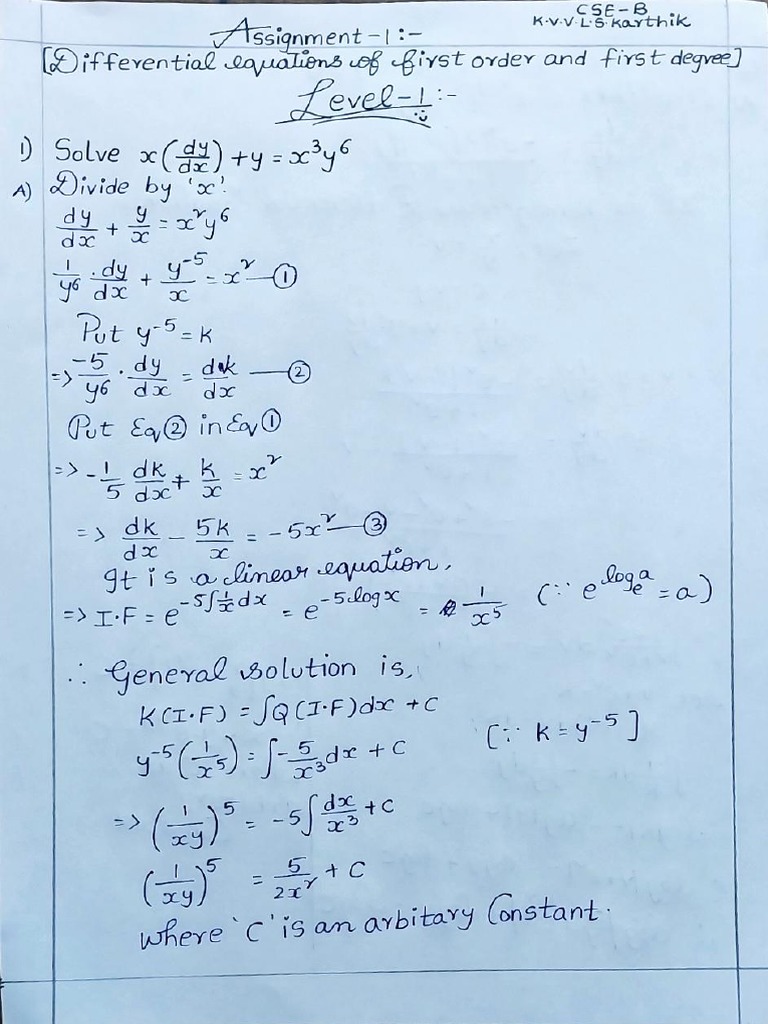 CSE-B
K.V.V.L.S.Karthik
Assignment-1:-
[Differential equations of first order and first degree]
Level-1:-
1) Solve x(dy/dx)+y=x³y⁶
A) Divide by 'x'.
dy/dx + y/x = x²y⁶
1/y⁶ . dy/dx + y⁻⁵/x = x² —①
Put y⁻⁵ = k
=> -5/y⁶ . dy/dx = dk/dx —②
Put Eq② in Eq①
=> -1/5 dk/dx + k/x = x²
=> dk/dx - 5k/x = -5x² —③
It is a linear equation.
=> I.F = e^(-5∫1/x dx) = e^(-5 log x) = 1/x⁵ (∵ e^(logₑa) = a)
∴ General solution is,
K(I.F) = ∫Q(I.F)dx + C
y⁻⁵(1/x⁵) = ∫-5/x³ dx + C [∵ k = y⁻⁵]
=> (1/xy)⁵ = -5∫dx/x³ + C
(1/xy)⁵ = 5/2x² + C
where 'C' is an arbitary Constant.